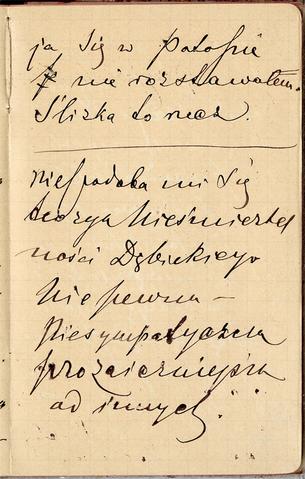 ja się w patosie
nie rozstawałem.
Śliska to rzecz.
Niepodoba mi się
teorya Nieśmiertel
ności Dębickiego
Niepewna —
Niesympatyczna
prozaiczniejsza
od innych.